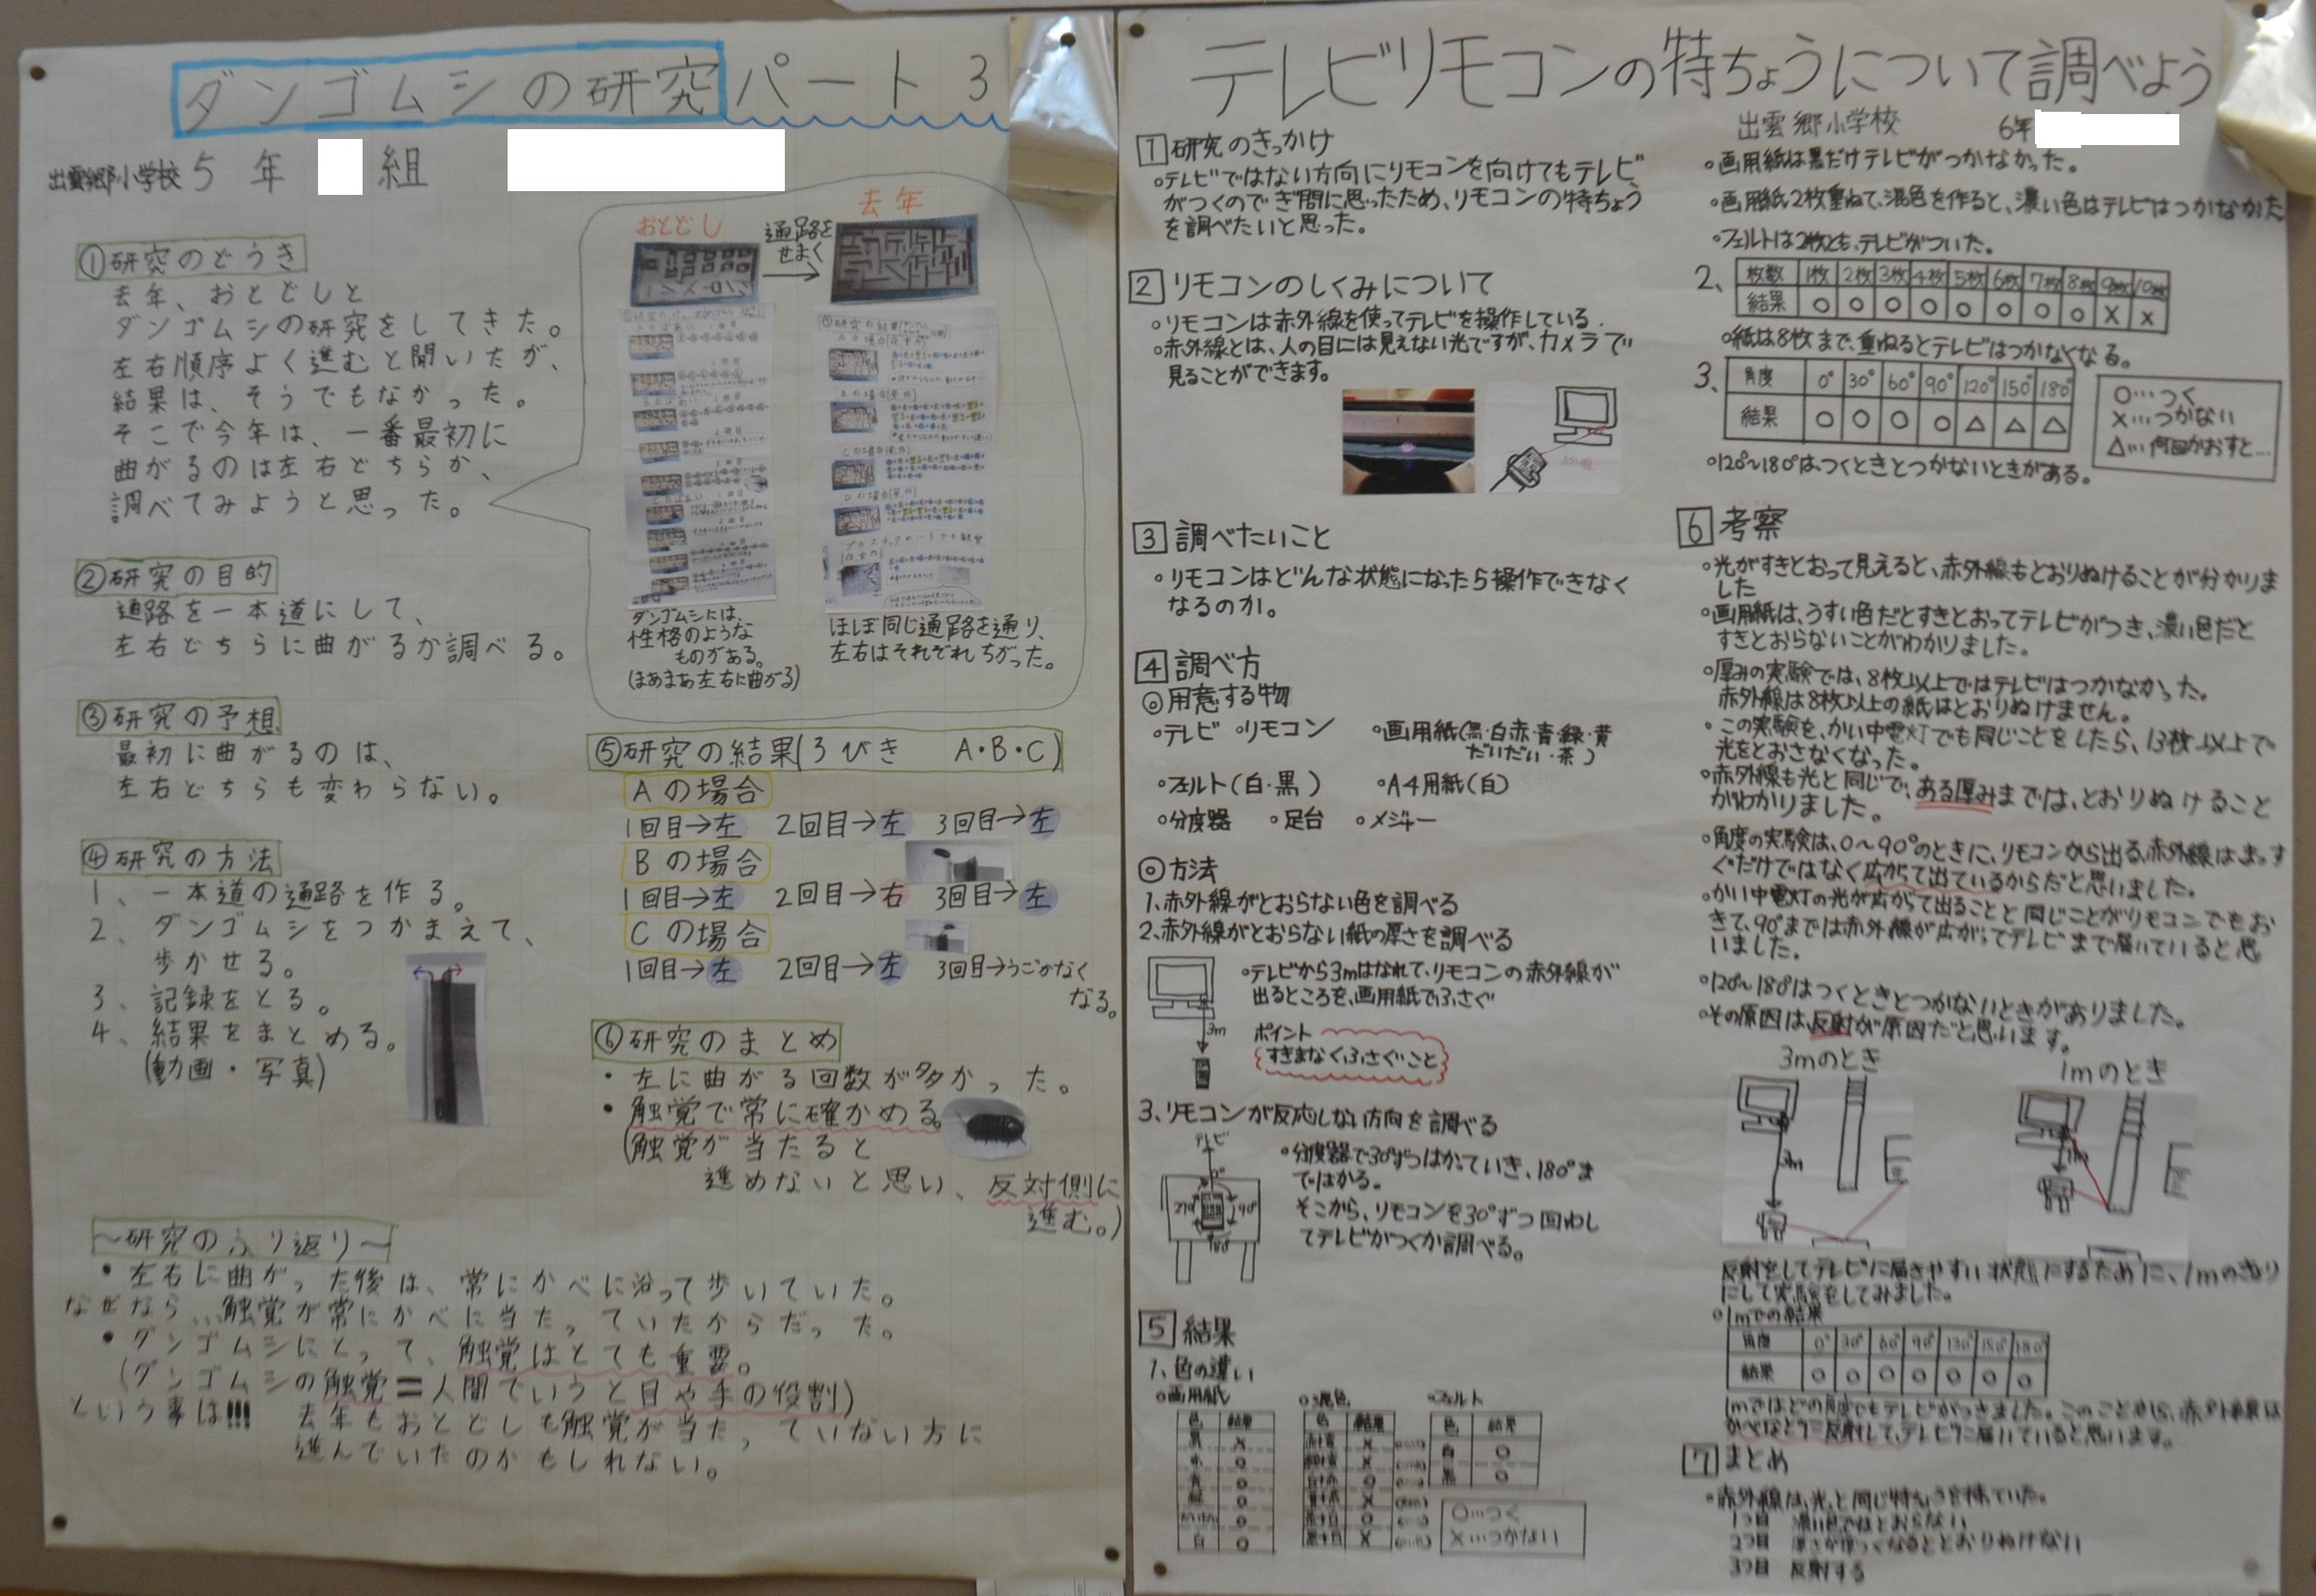 ダンゴムシの研究パート3
出雲郷小学校5年 組
①研究のどうき
去年、おとどしと
ダンゴムシの研究をしてきた。
左右順序よく進むと聞いたが、
結果は、そうでもなかった。
そこで今年は、一番最初に
曲がるのは左右どちらか、
調べてみようと思った。
おとどし
通路を
せまく
去年
ダンゴムシには、
性格のような
ものがある。
(まあまあ左右に曲がる)
ほぼ同じ通路を通り、
左右はそれぞれちがった。
②研究の目的
通路を一本道にして、
左右どちらに曲がるか調べる。
③研究の予想
最初に曲がるのは、
左右どちらも変わらない。
④研究の方法
1、一本道の通路を作る。
2、ダンゴムシをつかまえて、
歩かせる。
3、記録をとる。
4、結果をまとめる。
(動画・写真)
⑤研究の結果(3びき A・B・C)
Aの場合
1回目→左 2回目→左 3回目→左
Bの場合
1回目→左 2回目→右 3回目→左
Cの場合
1回目→左 2回目→左 3回目→うごかなく
なる。
⑥研究のまとめ
・左に曲がる回数が多かった。
・触覚で常に確かめる。
(触覚が当たると
進めないと思い、反対側に
進む。)
～研究のふり返り～
・左右に曲がった後は、常にかべに沿って歩いていた。
なぜなら…触覚が常にかべに当たっていたからだった。
・ダンゴムシにとって、触覚はとても重要。
(ダンゴムシの触覚＝人間でいうと目や手の役割)
という事は!!! 去年もおとどしも触覚が当たっていない方に
進んでいたのかもしれない。
テレビリモコンの特ちょうについて調べよう
出雲郷小学校 6年
1 研究のきっかけ
○テレビではない方向にリモコンを向けてもテレビ
がつくのでぎ問に思ったため、リモコンの特ちょう
を調べたいと思った。
2 リモコンのしくみについて
○リモコンは赤外線を使ってテレビを操作している.
○赤外線とは、人の目には見えない光ですが、カメラで
見ることができます。
3 調べたいこと
○リモコンはどんな状態になったら操作できなく
なるのか。
4 調べ方
◎用意する物
○テレビ ○リモコン ○画用紙(黒・白赤・青・緑・黄
だいだい・茶)
○フェルト(白・黒) ○A4用紙(白)
○分度器 ○足台 ○メジャー
◎方法
1、赤外線がとおらない色を調べる
2、赤外線がとおらない紙の厚さを調べる
○テレビから3mはなれて、リモコンの赤外線が
出るところを、画用紙でふさぐ
3m
ポイント
すきまなくふさぐこと
3、リモコンが反応しない方向を調べる
テレビ
0°
270° 90°
180°
○分度器で30°ずつはかっていき、180°ま
ではかる。
そこから、リモコンを30°ずつ回わし
てテレビがつくか調べる。
5 結果
1、色の違い
○画用紙 ○混色 ○フェルト
色 結果
黒 X
赤 ○
青 ○
緑 ○
白 ○
色 結果
色 結果
白 ○
黒 ○
○…つく
X…つかない
○画用紙は黒だけテレビがつかなかった。
○画用紙2枚重ねて、混色を作ると、濃い色はテレビはつかなかた
○フェルトは2枚とも、テレビがついた。
2、 枚数 1枚 2枚 3枚 4枚 5枚 6枚 7枚 8枚 9枚 10枚
結果 ○ ○ ○ ○ ○ ○ ○ ○ X X
○紙は8枚まで、重ねるとテレビはつかなくなる。
3、 角度 0° 30° 60° 90° 120° 150° 180°
結果 ○ ○ ○ ○ △ △ △
○…つく
X…つかない
△…何回かおすと…
○120°~180°は、つくときとつかないときがある。
6 考察
○光がすきとおって見えると、赤外線もとおりぬけることが分かりま
した
○画用紙は、うすい色だとすきとおってテレビがつき、濃い色だと
すきとおらないことがわかりました。
○厚みの実験では、8枚以上ではテレビはつかなかった。
赤外線は8枚以上の紙はとおりぬけません。
○この実験を、かい中電灯でも同じことをしたら、13枚以上で
光をとおさなくなった。
○赤外線も光と同じで、ある厚みまでは、とおりぬけること
がわかりました。
○角度の実験は、0～90°のときに、リモコンから出る赤外線はまっす
ぐだけではなく広がって出ているからだと思いました。
○かい中電灯の光が広がって出ることと同じことがリモコンでもお
きて、90°までは赤外線が広がってテレビまで届いていると思
いました。
○120°~180°はつくときとつかないときがありました。
○その原因は、反射が原因だと思います。
3mのとき 1mのとき
3m 1m
反射をしてテレビに届きやすい状態にするために、1mのきょり
にして実験をしてみました。
○1mでの結果
角度 0° 30° 60° 90° 120° 150° 180°
結果 ○ ○ ○ ○ ○ ○ ○
1mではどの角度でもテレビがつきました。このことから、赤外線は
かべなどで反射して、テレビに届いていると思います。
7 まとめ
○赤外線は、光と同じ特ちょうを持っていた。
1つ目 濃い色ではとおらない
2つ目 厚さが厚くなるととおりぬけない
3つ目 反射する